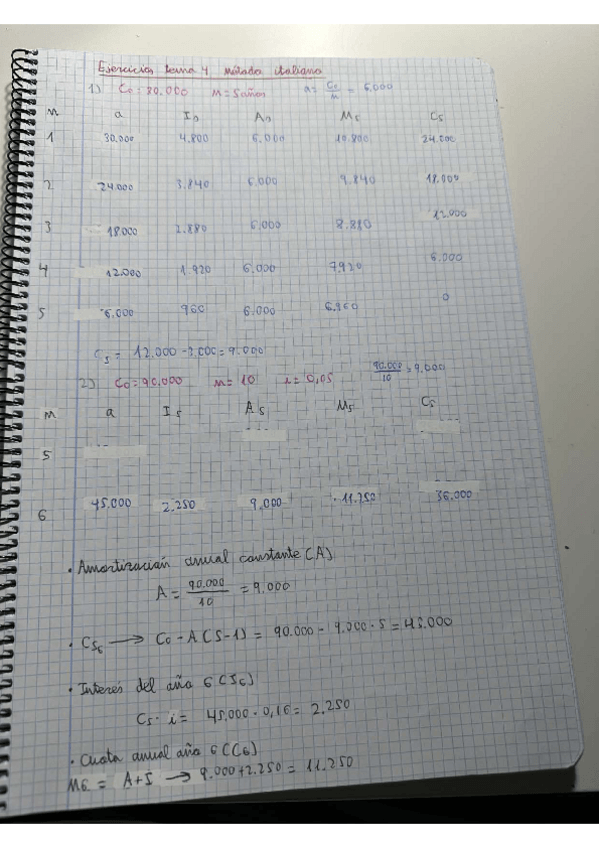 Ejercicios tema 4 método italiano
1) C0 = 30.000 n = 5 años a = C0/n = 6.000
n a Is As Ms Cs
1 30.000 4.800 6.000 10.800 24.000
2 24.000 3.840 6.000 9.840 18.000
3 18.000 2.880 6.000 8.880 12.000
4 12.000 1.920 6.000 7.920 6.000
5 6.000 960 6.000 6.960 0
C5 = 12.000 - 3.000 = 9.000
2) C0 = 90.000 n = 10 i = 0,05 90.000/10 = 9.000
n a Is As Ms Cs
5
6 45.000 2.250 9.000 11.250 36.000
· Amortización anual constante (A)
A = 90.000/10 = 9.000
· Cs6 → C0 - A (S-1) = 90.000 - 9.000 · 5 = 45.000
· Interes del año 6 (I6)
Cs · i = 45.000 · 0,16 = 2.250
· Cuota anual año 6 (C6)
M6 = A + I → 9.000 + 2.250 = 11.250